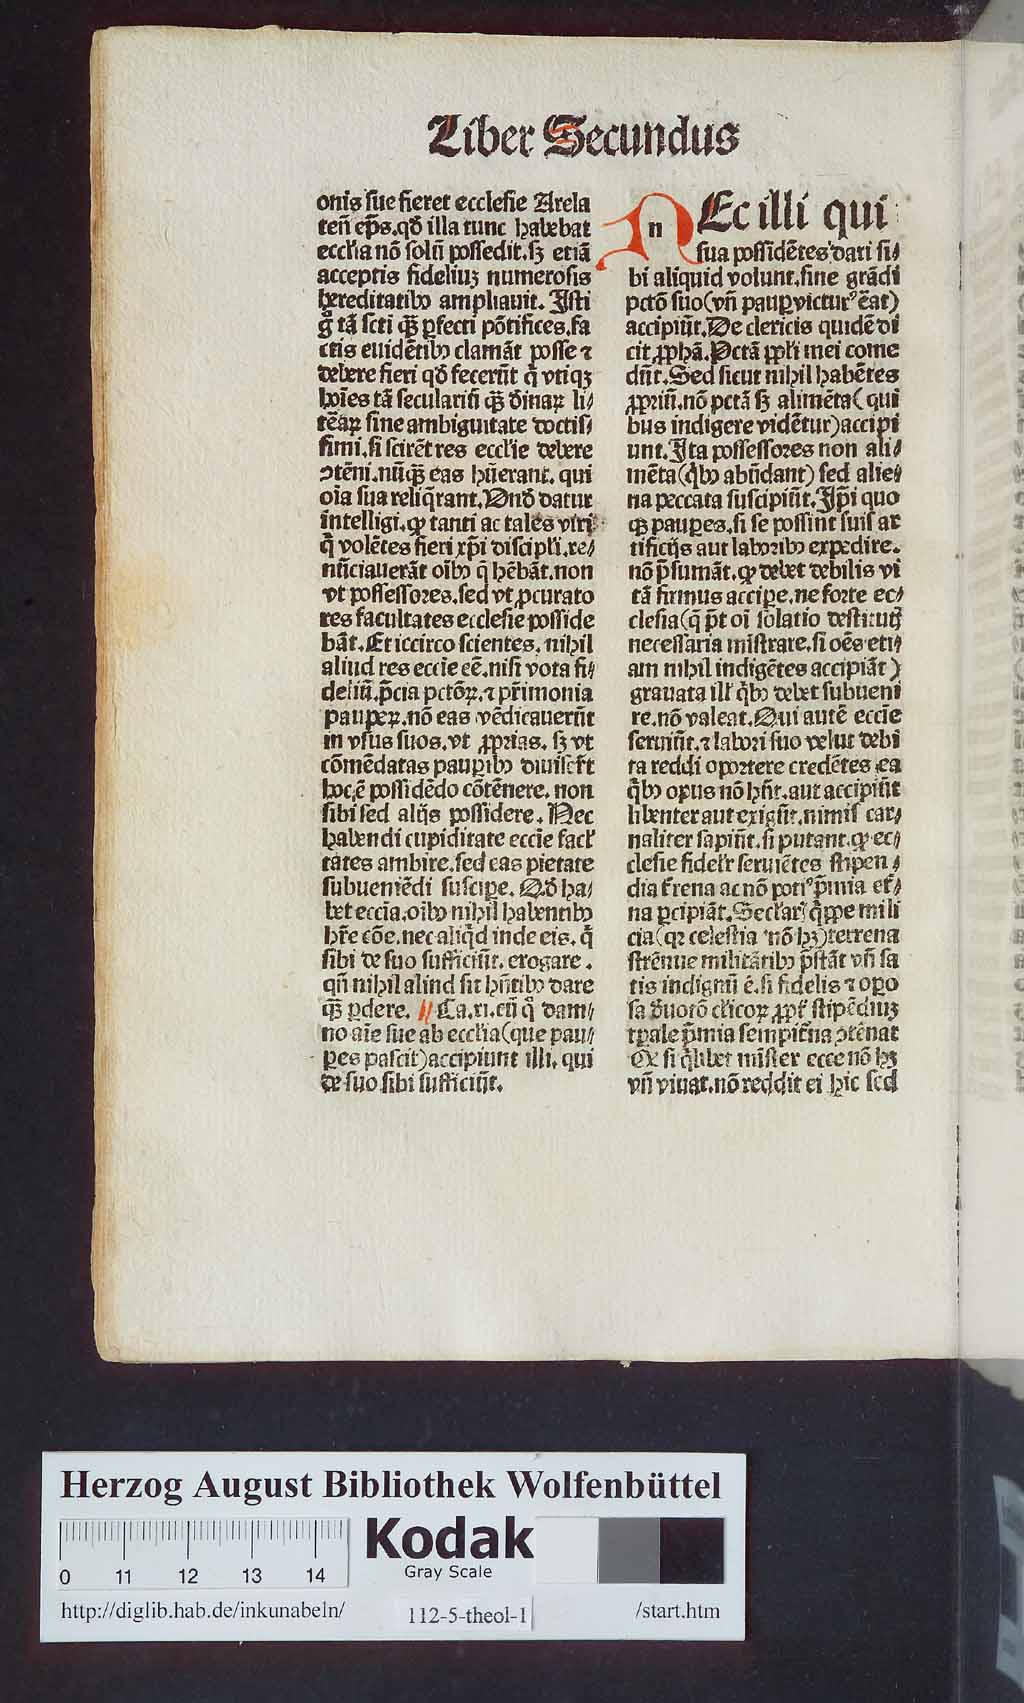 Liber Secundus
onis sue fieret ecclesie Arela
teñ ep̃s. qđ illa tunc habebat
eccl'ia nõ solũ possedit. sʒ etiã
acceptis fideliuʒ numerosis
hereditatibꝰ ampliauit. Isti
gͦ tã scti qꝫ̃ ꝑfecti põtifices. fa
ctis euidẽtibꝰ clamãt posse ⁊
debere fieri qđ fecerũt q̃ vtiqꝫ
hoĩes tã secularisi qꝫ̃ đinaꝝ li⸗
tẽaꝝ sine ambiguitate doctis⸗
simi. si scirẽt res eccl'ie debere
ↄtẽni. nũqꝫ̃ eas hũerant. qui
oĩa sua reliq̃rant. Vnđ datur
intelligi. ꝙ tanti ac tales viri
q̃ volẽtes fieri xp̃i discipl'i. re⸗
nũciauerãt oĩbꝰ q̃ hẽbãt. non
vt possessores. sed vt ꝓcurato
res facultates ecclesie posside
bãt. Et iccirco scientes. nihil
aliud res eccĩe eẽ. nisi vota fi⸗
deliũ. p̃cia pctõꝝ. ⁊ pr̃imonia
pauꝑꝝ. nõ eas vẽdicauerũt
in vsus suos. vt ꝓprias. sʒ vt
cõmẽdatas pauꝑibꝰ diuiser̃t
hoc ẽ possidẽdo cõtẽnere. non
sibi sed alijs possidere. Nec
habendi cupiditate eccĩe facl'
tates ambire. sed eas pietate
subueniẽdi suscipe. Qđ ha⸗
bet eccĩa. oĩbꝰ nihil habentibꝰ
hr̃e cõe. nec aliq̃d inde eis. q̃
sibi de suo sufficiũt. erogare.
qñ nihil aliud sit hñtibꝰ dare
qꝫ̃ ꝑdere. Ca. xi. cũ qͦ dam⸗
no aĩe sue ab eccl'ia (que pau⸗
ꝑes pascit) accipiunt illi. qui
de suo sibi sufficiũt.
n Ec illi qui
sua possidẽtes dari si⸗
bi aliquid volunt. sine grãdi
pctõ suo (vñ pauꝑ victurꝰ ẽat)
accipiũt. De clericis quidẽ di
cit ꝓphã. Pctã ppl'i mei come
dũt. Sed sicut nihil habẽtes
ꝓpriũ. nõ pctã sʒ alimẽta (qui
bus indigere vidẽtur) accipi
unt. Ita possessores non ali⸗
mẽta (q̃bꝰ abũdant) sed alie⸗
na peccata suscipiũt. Ip̃i quo
qꝫ pauꝑes. si se possint suis ar
tificijs aut laboribꝰ expedire.
nõ p̃sumãt. ꝙ debet debilis vĩ
tã firmus accipe. ne forte ec⸗
clesia (q̃ p̃t oĩ solatio destitut̃
necessaria mĩstrare. si oẽs eti⸗
am nihil indigẽtes accipiãt)
grauata ill' q̃bꝰ debet subueni
re. nõ valeat. Qui autẽ eccĩe
seruiũt. ⁊ labori suo velut debi
ta reddi oportere credẽtes ea
q̃bꝰ opus nõ hñt. aut accipiũt
libenter aut exigũt. nimis car⸗
naliter sapiũt. si putant. ꝙ ec⸗
clesie fidel'r seruiẽtes stipen⸗
dia t̃rena ac nõ potiꝰ p̃mia et̃⸗
na ꝑcipiãt. Secl'ari q̃ppe mili
cia (qꝛ celestia nõ hʒ) terrena
strẽnue militãtibꝰ p̃stãt vñ sa
tis indignũ ẽ. si fidelis ⁊ oꝑo
sa đuotõ cl'icoꝝ ꝓpt̃ stipẽdiuʒ
tꝑale p̃mia sempit̃na ↄtẽnat
Qꝛ si q̃libet mĩster ecce nõ hʒ
vñ viuat. nõ reddit ei hic sed
Herzog August Bibliothek Wolfenbüttel
Kodak
Gray Scale
0 11 12 13 14
http://diglib.hab.de/inkunabeln/
112-5-theol-1
/start.htm